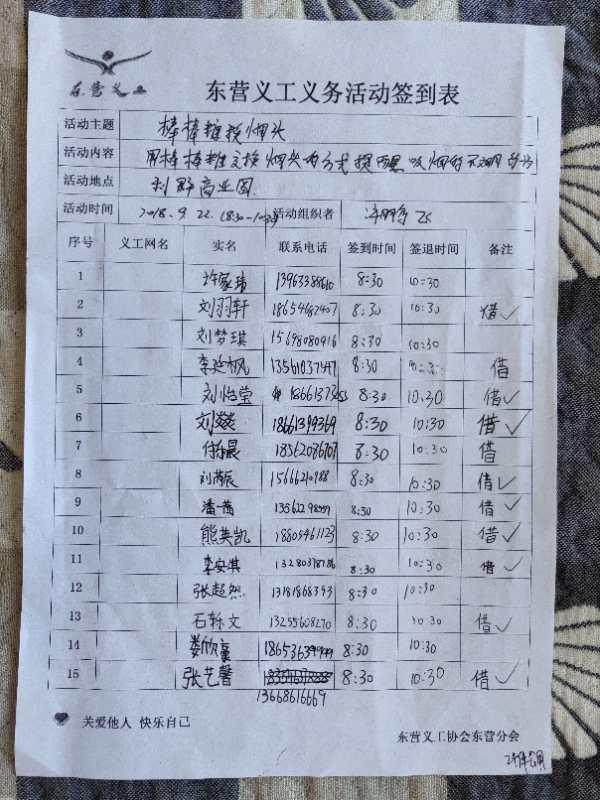 东营义工
东营义工义务活动签到表
活动主题 棒棒糖换烟头
活动内容 用棒棒糖交换烟头的方式提醒吸烟者不烟
活动地点 利群商业圈
活动时间 2018.9.22. 活动组织者
序号 义工网名 实名 联系电话 签到时间 签退时间 备注
1 许家玮 13963388610 8:30 10:30
2 刘羽轩 18654682407 8:30 10:30 借✓
3 刘梦琪 15698080916 8:30 10:30
4 李延枫 13561037547 8:30 借
5 刘怡莹 8:30 10:30 借✓
6 18661399369 8:30 10:30 借✓
7 8:30 10:30 借
8 刘芮辰 15666210988 8:30 10:30 借✓
9 潘茜 8:30 10:30 借✓
10 熊英凯 18805461123 8:30 10:30 借✓
11 李安淇 8:30 10:30 借✓
12 张超然 13181868393 8:30 10:30
13 石轹文 13255608270 8:30 10:30 借✓
14 8:30 10:30
15 张艺馨 8:30 10:30 借✓
13668616669
关爱他人 快乐自己
东营义工协会东营分会